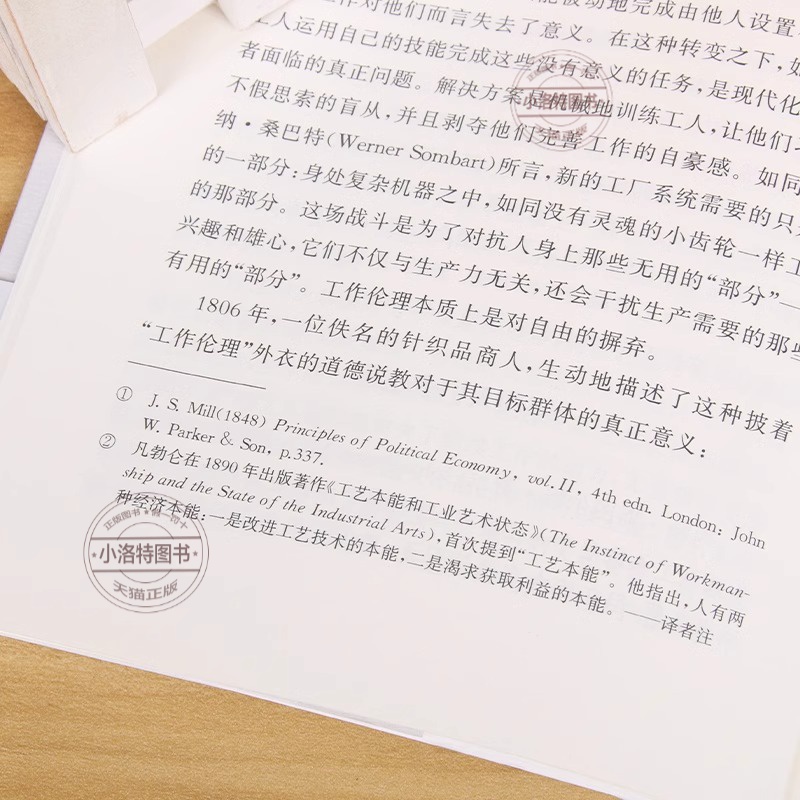 能被动地完成由他人设置
工作对他们而言失去了意义。在这种转变之下，如
工人运用自己的技能完成这些没有意义的任务，是现代化
者面临的真正问题。解决方案是机械地训练工人，让他们
不假思索的盲从，并且剥夺他们完善工作的自豪感。如同
纳·桑巴特(Werner Sombart)所言，新的工厂系统需要的只
的一部分：身处复杂机器之中，如同没有灵魂的小齿轮一样工
的那部分。这场战斗是为了对抗人身上那些无用的“部分”—
兴趣和雄心，它们不仅与生产力无关，还会干扰生产需要的那些
有用的“部分”。工作伦理本质上是对自由的摒弃。
1806 年，一位佚名的针织品商人，生动地描述了这种披着
“工作伦理”外衣的道德说教对于其目标群体的真正意义：
① J. S. Mill(1848) Principles of Political Economy, vol.II, 4th edn. London: John
W. Parker & Son, p.337.
② 凡勃仑在 1890 年出版著作《工艺本能和工业艺术状态》(The Instinct of Workman-
ship and the State of the Industrial Arts)，首次提到“工艺本能”。他指出，人有两
种经济本能：一是改进工艺技术的本能，二是渴求获取利益的本能。——译者注
小洛特图书
正版图书
小洛特图书
天猫正版